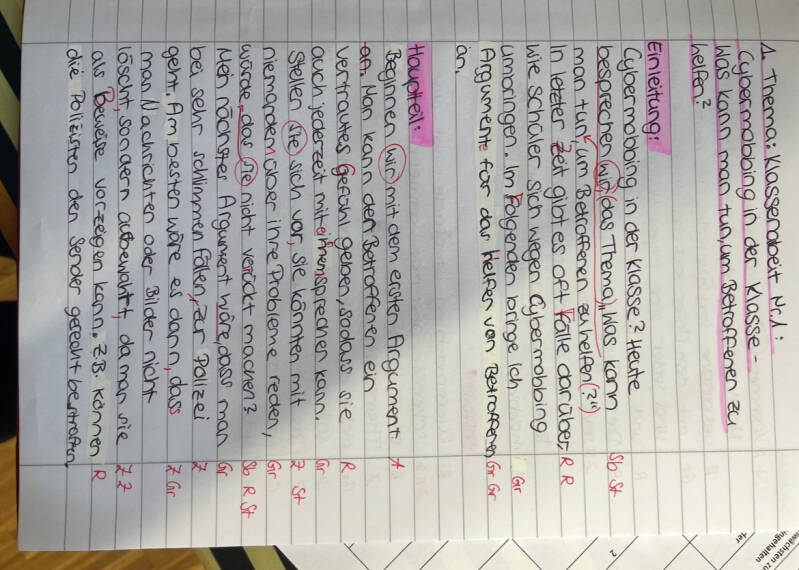 1. Thema: Klassenarbeit Nr.1:
Cybermobbing in der Klasse -
Was kann man tun, um Betroffenen zu
helfen?
Einleitung:
Cybermobbing in der Klasse? Heute
besprechen wir, das Thema,, Was kann Sb St
man tun um Betroffenen zu helfen (?")
In letzter Zeit gibt es oft Fälle darüber, R R
wie Schüler sich wegen Cybermobbing
umbringen. Im Folgenden bringe ich Gr
Argumente für das Helfen von Betroffenen Gr Gr
an.
Hauptteil:
Beginnen wir mit dem ersten Argument A
an. Man kann den Betroffenen ein
vertrautes Gefühl geben, sodass sie R
auch jederzeit mit einem sprechen kann. Gr
Stellen sie sich vor, sie könnten mit Z St
niemandem über ihre Probleme reden, Gr
würde das sie nicht verückt machen? Sb R St
Mein nächster Argument wäre, dass man Gr
bei sehr schlimmen Fällen, zur Polizei Z
geht. Am besten wäre es dann, dass Z Gr
man Nachrichten oder Bilder nicht
löscht, sondern aufbewahrt, da man sie Z Z
als Beweise vorzeigen kann. Z.B. können R
die Polizisten den Sender gerecht bestraffen,
2